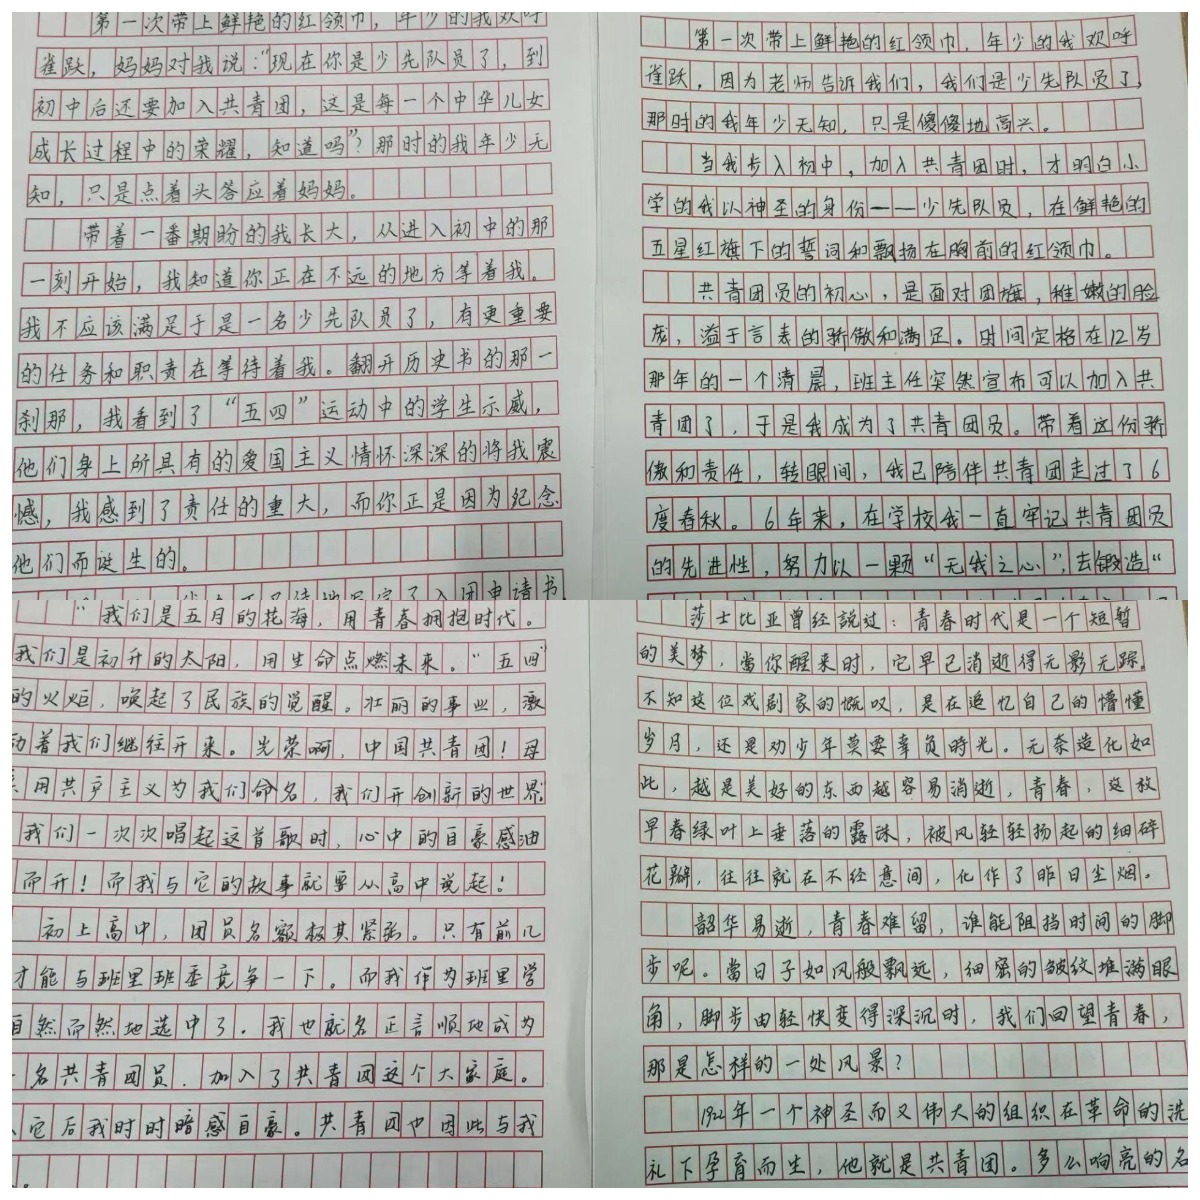 第一次带上鲜艳的红领巾，年少的我欢呼
雀跃，妈妈对我说：“现在你是少先队员了，到
初中后还要加入共青团，这是每一个中华儿女
成长过程中的荣耀，知道吗”？那时的我年少无
知，只是点着头答应着妈妈。
带着一番期盼的我长大，从进入初中的那
一刻开始，我知道你正在不远的地方等着我。
我不应该满足于是一名少先队员了，有更重要
的任务和职责在等待着我。翻开历史书的那一
刹那，我看到了“五四”运动中的学生示威，
他们身上所具有的爱国主义情怀深深的将我震
憾，我感到了责任的重大，而你正是因为纪念
他们而诞生的。
了入团申请书，
第一次带上鲜艳的红领巾，年少的我欢呼
雀跃，因为老师告诉我们，我们是少先队员了，
那时的我年少无知，只是傻傻地高兴。
当我步入初中，加入共青团时，才明白小
学的我以神圣的身份——少先队员，在鲜艳的
五星红旗下的誓词和飘扬在胸前的红领巾。
共青团员的初心，是面对团旗，稚嫩的脸
庞，溢于言表的骄傲和满足。时间定格在12岁
那年的一个清晨，班主任突然宣布可以加入共
青团了，于是我成为了共青团员。带着这份骄
傲和责任，转眼间，我已陪伴共青团走过了6
度春秋。6年来，在学校我一直牢记共青团员
的先进性，努力以一颗“无我之心”，去锻造“
“我们是五月的花海，用青春拥抱时代。
我们是初升的太阳，用生命点燃未来。“五四”
的火炬，唤起了民族的觉醒。壮丽的事业，激
动着我们继往开来。光荣啊，中国共青团！母
亲用共产主义为我们命名，我们开创新的世界
我们一次次唱起这首歌时，心中的自豪感油
而升！而我与它的故事就要从高中说起！
初上高中，团员名额极其紧张。只有前几
才能与班里班委竞争一下。而我作为班里学
自然而然地选中了。我也就名正言顺地成为
一名共青团员，加入了共青团这个大家庭。
入它后我时时暗感自豪。共青团也因此与我
莎士比亚曾经說过：青春时代是一个短暂
的美梦，當你醒来时，它早已消逝得无影无踪。
不知这位戏剧家的慨叹，是在追忆自己的懵懂
岁月，还是劝少年莫要辜负時光。无奈造化如
此，越是美好的东西越容易消逝，青春，这枚
早春绿叶上垂落的露珠，被风轻轻扬起的细碎
花瓣，往往就在不经意间，化作了昨日尘烟。
韶华易逝，青春难留，谁能阻挡时间的脚
步呢。當日子如风般飘远，细密的皱纹堆满眼
角，脚步由轻快变得深沉时，我们回望青春，
那是怎样的一处风景？
1922年一个神圣而又伟大的组织在革命的洗
礼下孕育而生，他就是共青团。多么响亮的名